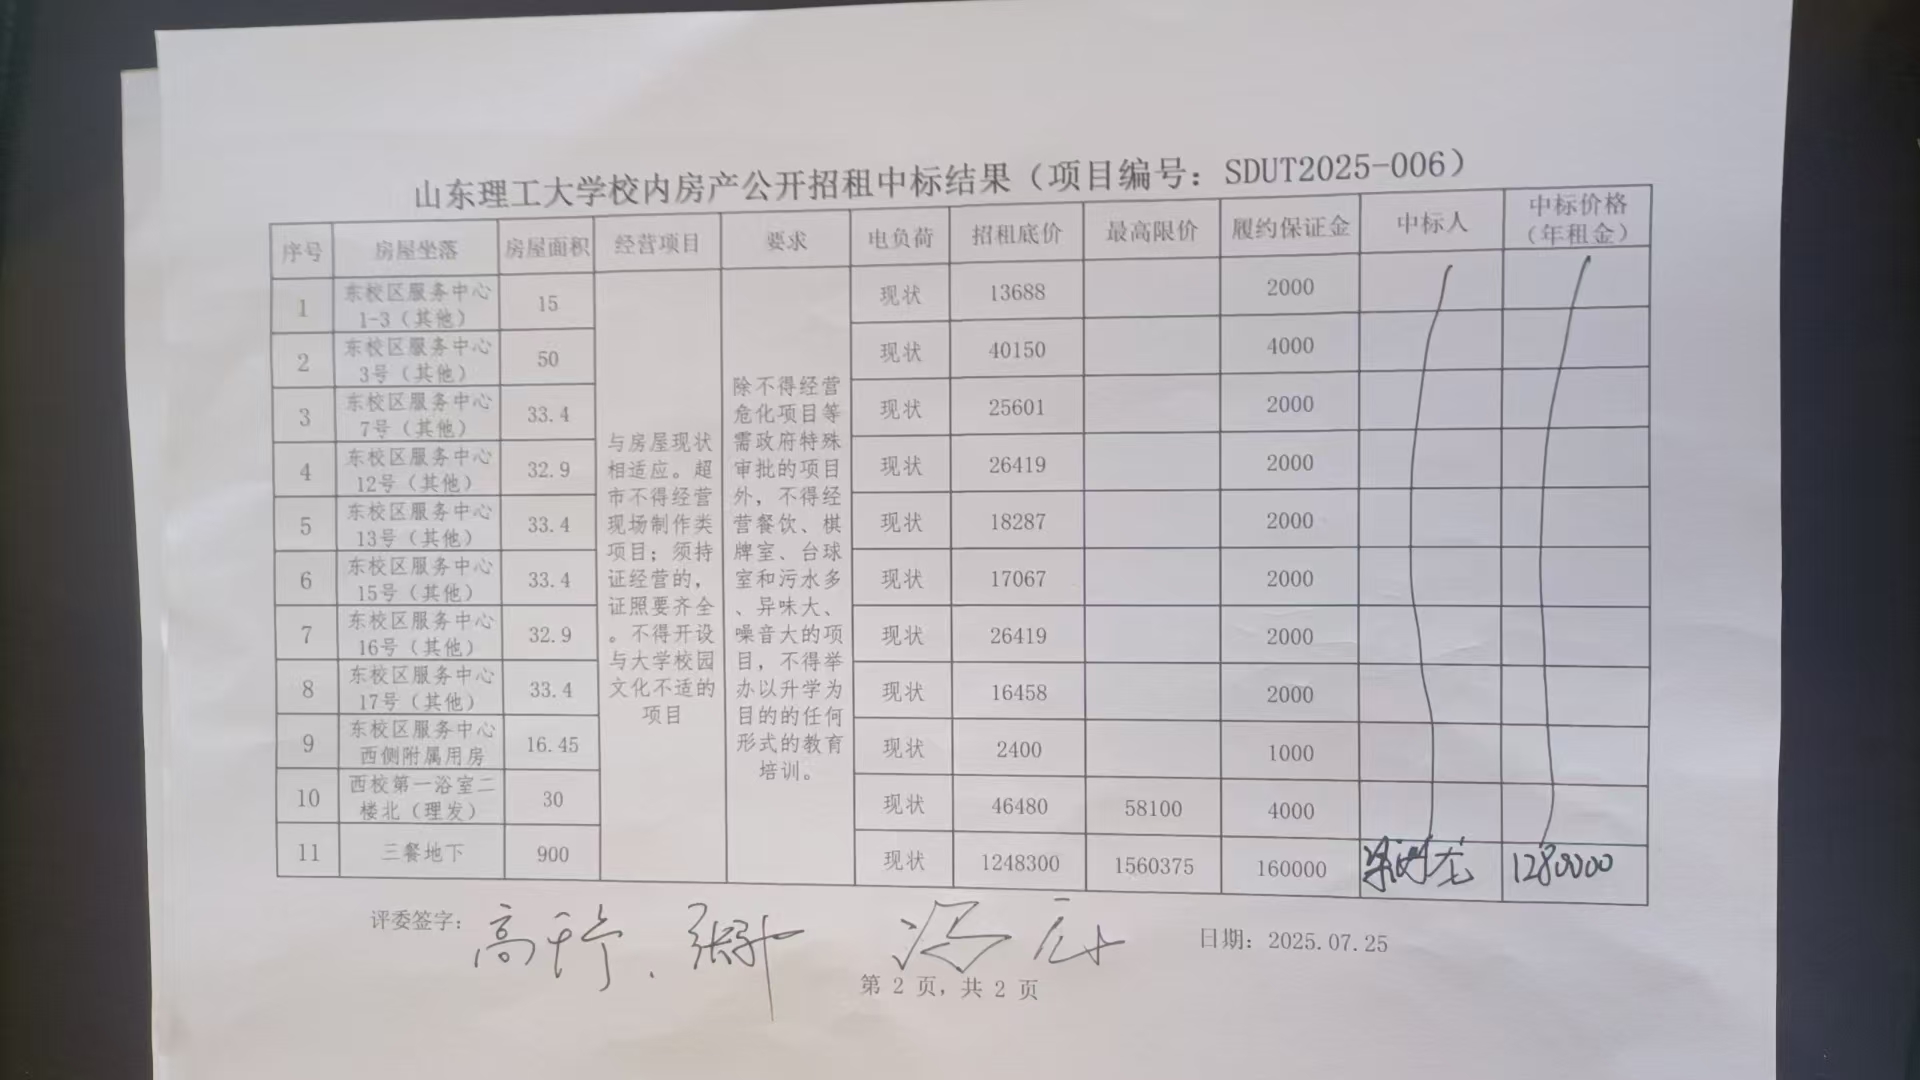 山东理工大学校内房产公开招租中标结果（项目编号：SDUT2025-006）
序号 房屋坐落 房屋面积 经营项目 要求 电负荷 招租底价 最高限价 履约保证金 中标人 中标价格
（年租金）
1 东校区服务中心
1-3（其他） 15 现状 13688 2000
2 东校区服务中心
3号（其他） 50 现状 40150 4000
3 东校区服务中心
7号（其他） 33.4 现状 25601 2000
4 东校区服务中心
12号（其他） 32.9 现状 26419 2000
5 东校区服务中心
13号（其他） 33.4 现状 18287 2000
6 东校区服务中心
15号（其他） 33.4 现状 17067 2000
7 东校区服务中心
16号（其他） 32.9 现状 26419 2000
8 东校区服务中心
17号（其他） 33.4 现状 16458 2000
9 东校区服务中心
西侧附属用房 16.45 现状 2400 1000
10 西校第一浴室二
楼北（理发） 30 现状 46480 58100 4000
11 三餐地下 900 现状 1248300 1560375 160000 1280000
与房屋现状
相适应。超
市不得经营
现场制作类
项目；须持
证经营的，
证照要齐全
。不得开设
与大学校园
文化不适的
项目
除不得经营
危化项目等
需政府特殊
审批的项目
外，不得经
营餐饮、棋
牌室、台球
室和污水多
、异味大、
噪音大的项
目，不得举
办以升学为
目的的任何
形式的教育
培训。
评委签字：
日期：2025.07.25
第 2 页，共 2 页